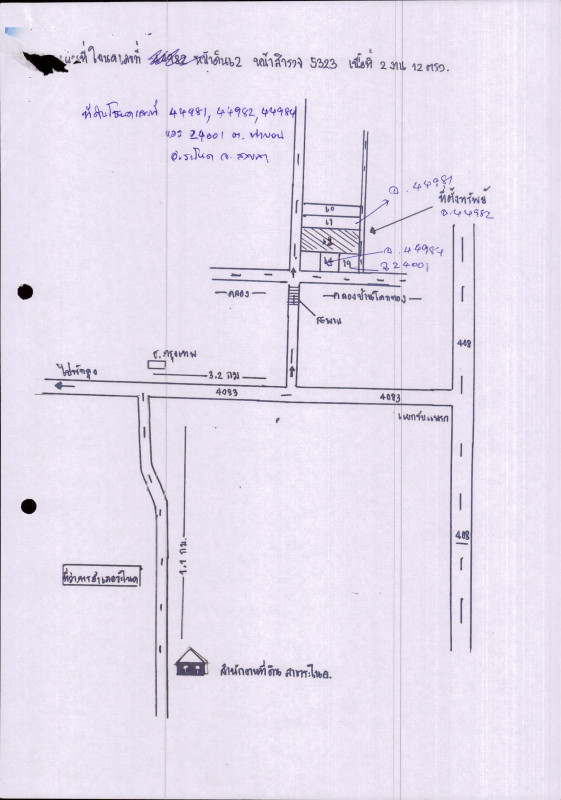 ที่โฉนดเลขที่ หน้าดิน ๖2 หน้าสำรวจ 5323 เนื้อที่ 2 งาน 12 ตรว.
ที่ดินโฉนดเลขที่ 44981, 44982, 44984
และ 24001 ต. ท่าบอน
อ.ระโนด จ. สงขลา
ฉ. 44981
ที่ตั้งทรัพย์
ฉ.44982
60
61
62
ฉ. 44984
19
ฉ 24001
คลอง
คลองบ้านโคกทอง
สะพาน
408
ธ. กรุงเทพ
ไปพัทลุง
3.2 กม
4083
4083
แยกรับแพรก
408
1.1 กม.
ที่ว่าการอำเภอระโนด
สำนักงานที่ดิน สาขาระโนด.